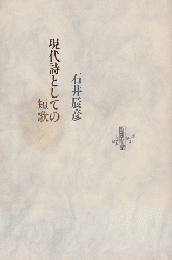 石井辰彦
現代詩としての
短歌